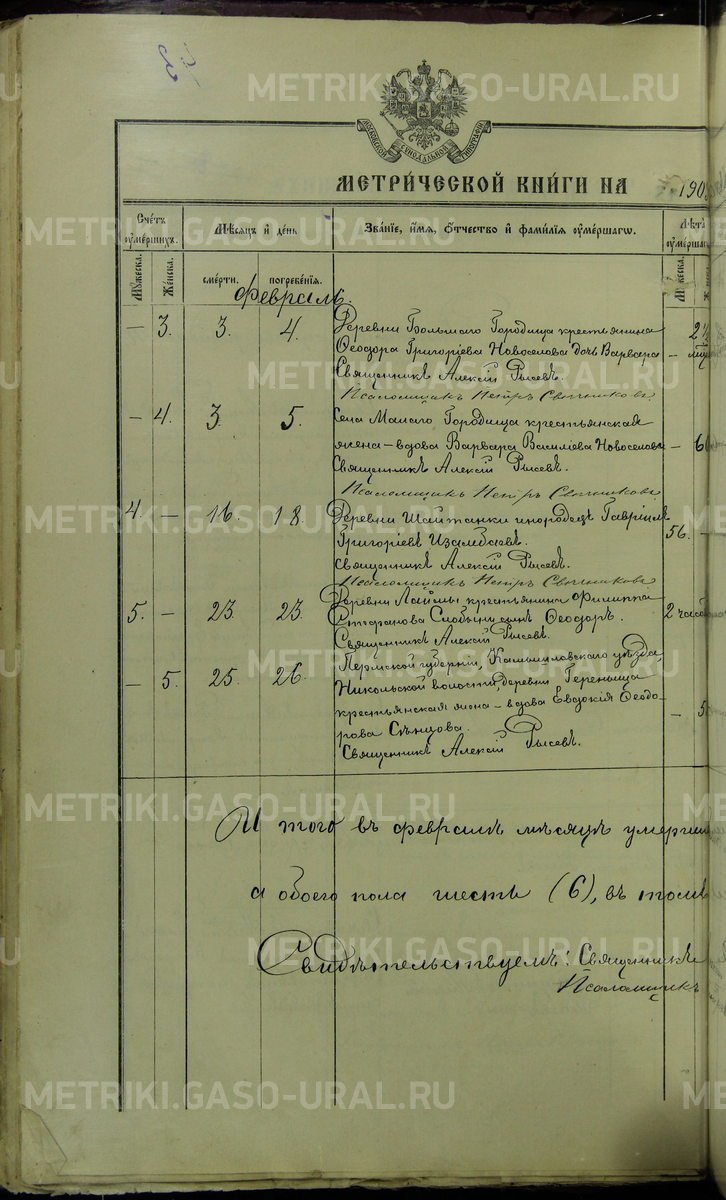 МОСКОВСКОЙ СУНОДАЛЬНОЙ ТИПОГРАФІИ
МЕТРИ́ЧЕСКОЙ КНИ́ГИ НА 190
Сче́тъ ѹме́ршихъ.
Мѣ́сяцъ и҆ де́нь
Зва́нїе, и҆́мя, ѻ҆́тчество и҆ фами́лїя ѹме́ршагѡ.
Лѣ́та ѹме́ршаг
Му́жеска.
Же́нска.
сме́рти.
погребе́нїя.
Февраль.
— 3. 3. 4. Деревни Большаго Городища крестьянина
Ѳеодора Григоріева Новоселова дочь Варвара —
Священникъ Алексій Рысевъ.
Псаломщикъ Петръ Свѣчниковъ.
— 4. 3. 5. Села Малаго Городища крестьянская
жена – вдова Варвара Василіева Новоселова —
Священникъ Алексій Рысевъ.
Псаломщикъ Петръ Свѣчниковъ
4. — 16. 18. Деревни Шайтанки инородецъ Гавріилъ 56. —
Григоріевъ Изамбаевъ.
Священникъ Алексій Рысевъ.
Псаломщикъ Петръ Свѣчниковъ
5. — 23. 23. Деревни Лаймы крестьянина Филиппа 2 часа
Стефанова сынъ Ѳеодоръ.
Священникъ Алексій Рысевъ.
— 5. 25. 26. Пермской губерніи, Камышловскаго уѣзда,
Никольской волости, деревни
крестьянская жена – вдова Евдокія Ѳеодо-
рова Сѣнцова. — 5
Священникъ Алексій Рысевъ.
И того въ февралѣ мѣсяцѣ умерши
а обоего пола шесть (6), въ томъ
Свидѣтельствуемъ: Священникъ
Псаломщикъ
METRIKI.GASO-URAL.RU